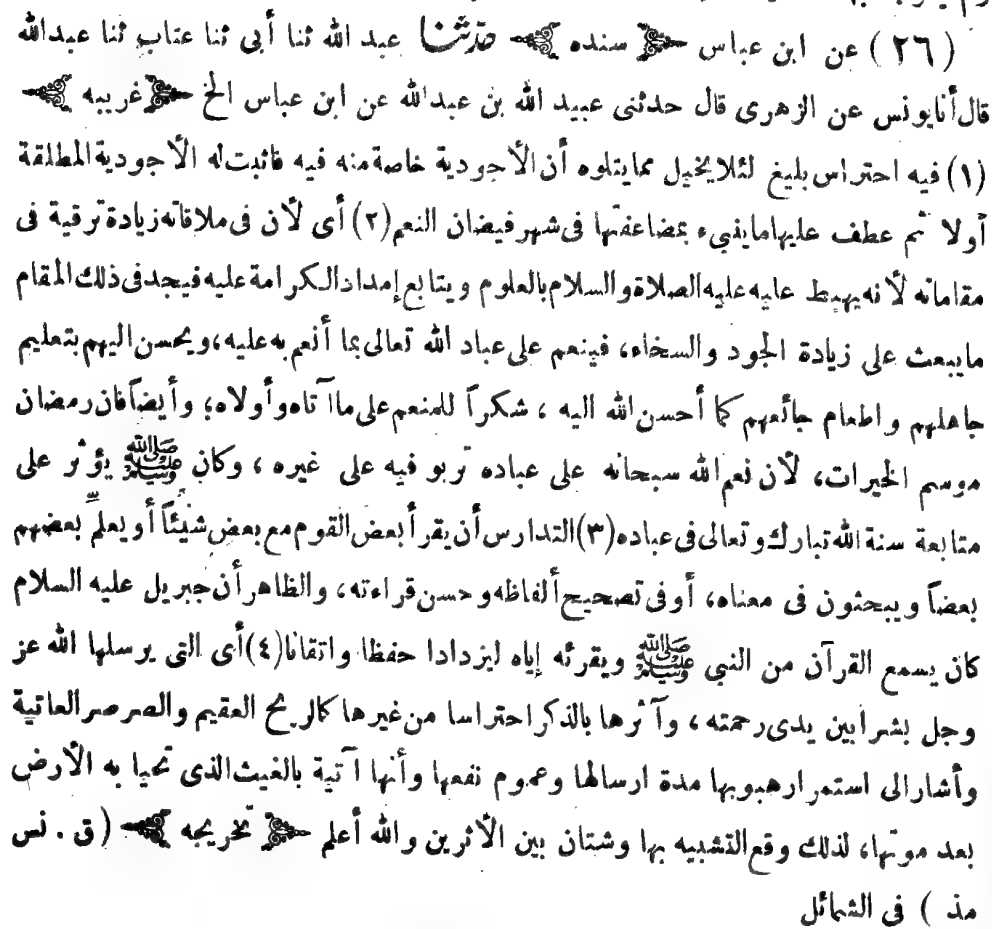 (٢٦) عن ابن عباس ﴿ سنده ﴾ حدثنا عبد الله ثنا أبي ثنا عتاب ثنا عبد الله
قال أنا يونس عن الزهرى قال حدثنى عبيد الله بن عبدالله عن ابن عباس الخ ﴿ غريبه ﴾
(١) فيه احتراس بليغ لئلا يخيل مما يتلوه أن الأجودية خاصة منه فيه فاثبت له الأجودية المطلقة
أولا ثم عطف عليها ما ينبيء بمضاعفتها فى شهر فيضان النعم (٢) أى لأن فى ملاقاته زيادة ترقية فى
مقاماته لأنه يهبط عليه عليه الصلاة والسلام بالعلوم ويتابع إمداد الكرامة عليه فيجد فى ذلك المقام
ما يبعث على زيادة الجود والسخاء، فينعم على عباد الله تعالى بما أنعم به عليه، ويحسن اليهم بتعليم
جاهلهم واطعام جائعهم كما أحسن الله اليه ، شكراً للمنعم على ما آتاه وأولاه؛ وأيضاً فان رمضان
موسم الخيرات، لأن نعم الله سبحانه على عباده تربو فيه على غيره ، وكان ﷺ يؤثر على
متابعة سنة الله تبارك وتعالى فى عباده (٣) التدارس أن يقرأ بعض القوم مع بعض شيئاً أو يعلّم بعضهم
بعضاً ويبحثون فى معناه، أو فى تصحيح ألفاظه وحسن قراءته، والظاهر أن جبريل عليه السلام
كان يسمع القرآن من النبى ﷺ ويقرئه إياه ليزدادا حفظا واتقانا (٤) أى التى يرسلها الله عز
وجل بشرا بين يدى رحمته ، وآثرها بالذكر احتراسا من غيرها كالريح العقيم والصرصر العاتية
وأشار الى استمرار هبوبها مدة ارسالها وعموم نفعها وأنها آتية بالغيث الذى تحيا به الأرض
بعد موتها، لذلك وقع التشبيه بها وشتان بين الأثرين والله أعلم ﴿ تخريجه ﴾ (ق . نس
مذ ) فى الشمائل